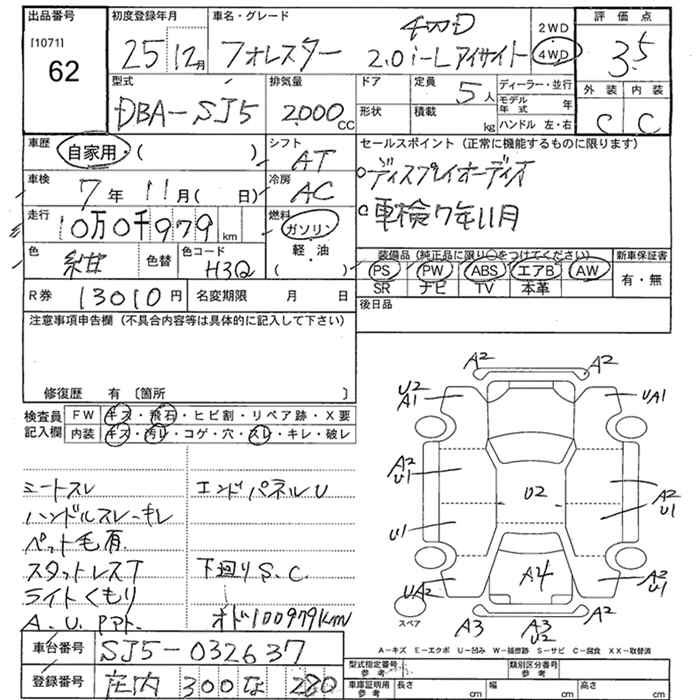 出品番号 [1071] 62
初度登録年月 25 12月
車名・グレード フォレスター 4WD 2.0 i-L アイサイト
2WD 4WD
評価点 3.5
外装 C 内装 C
型式 DBA-SJ5
排気量 2000 CC
ドア
形状
定員 5人
積載 kg
ディーラー・並行
モデル年式 年
ハンドル 左・右
車歴 自家用・( )
シフト AT
セールスポイント (正常に機能するものに限ります)
車検 7年 11月( 日)
冷房 AC
ディスプレイオーディオ
車検7年11月
走行 10万0千979 km
燃料 ガソリン 軽・油 ( )
色 紺 色替
色コード H3Q
装備品 (純正品に限り○をつけてください) 新車保証書
PS PW ABS エアB AW 有・無
SR ナビ TV 本革
R券 13010円 名変期限 月 日
後日品
注意事項申告欄 (不具合内容等は具体的に記入して下さい)
修復歴 有 〔箇所 〕
検査員記入欄 FW キズ・飛石・ヒビ割・リペア跡・X要
内装 キズ・汚レ・コゲ・穴・スレ・キレ・破レ
シートスレ
ハンドルスレ・キレ
ペット毛有
スタットレスT
ライトくもり
A.U.
エンドパネルU
下廻りS.C.
オド100979km
A2 A2
U2 A1 UA1
A2 U1 U2 A2 U1
U1
UA2 A4 A2 U1
スペア A3 A3 U2 A2
A-キズ E-エクボ U-凹み W-補修跡 S-サビ C-腐食 XX-取替済
車台番号 SJ5-032637
登録番号 庄内 300 な 280
型式指定番号 参考
類別区分番号 参考
車庫証明用 参考 長さ cm 幅 cm 高さ cm